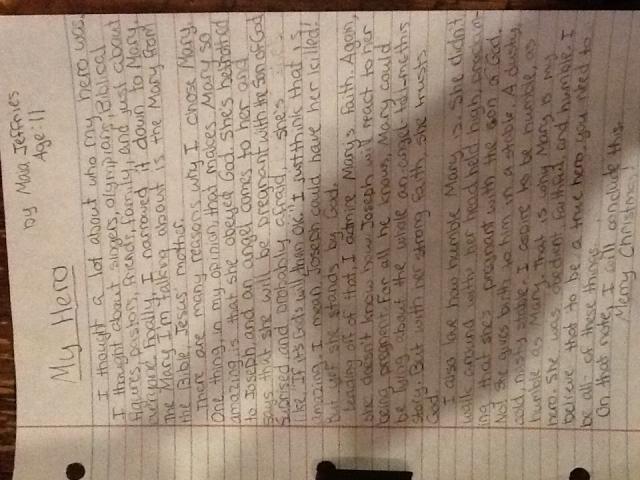 My Hero
by Maia Jeffries
Age: 11
I thought a lot about who my hero was.
I thought about singers, olympians, Biblical
figures, pastors, friends, family, and just about
everyone. Finally, I narrowed it down to Mary.
The Mary I'm talking about is the Mary from
the Bible, Jesus' mother.
There are many reasons why I chose Mary.
One thing, in my opinion, that makes Mary so
amazing, is that she obeyed God. She's betrothed
to Joseph and an angel comes to her and
says that she will be pregnant with the Son of God.
Suprised and probably afraid, she's
like "If it's God's will then ok." I just think that is
amazing. I mean Joseph could have her killed!
But yet she stands by God.
Leading off of that, I admire Mary's faith. Again,
she doesn't know how Joseph will react to her
being pregnant. For all he knows, Mary could
be lying about the whole an angel-told-me-this
story. But with her strong faith, she trusts
God.
I also love how humble Mary is. She didn't
walk around with her head held high, proclaim-
ing that she's pregnant with the son of God.
No! She gives birth to him in a stable. A dusty,
cold, messy stable. I desire to be humble, as
humble as Mary. That is why Mary is my
hero. She was obedient, faithful, and humble. I
believe that to be a true hero you need to
be all of these things.
On that note, I will conclude this.
Merry Christmas!